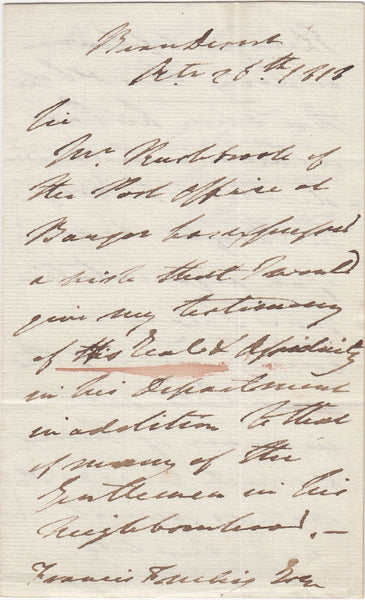 Beaudesert
Octr 26th 1818
Sir
Mr. Rushbrook of
the Post Office at
Bangor has expressed
a wish that I would
give my testimony
of his Zeal & Assiduity
in his Department
in addition to that
of many of the
Gentlemen in his
Neighbourhood. —
Francis Freeling Esqr